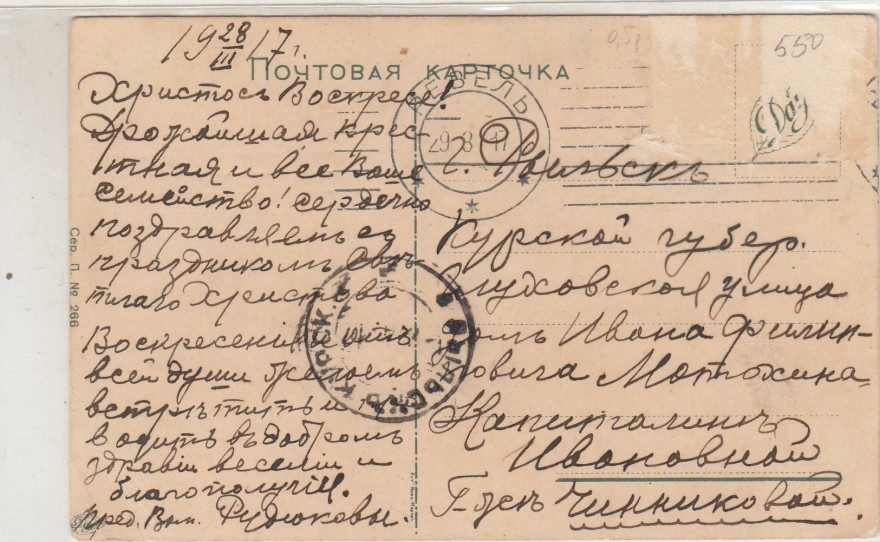 19 28/III 17 г.
0,5 р
550
Почтовая карточка
Христосъ Воскресе!
Дрожайшая крес-
тная и все Ваше
семейство! сердечно
поздравляемъ съ
праздникомъ Свѣ-
тлаго Христова
Воскресения
всей души желаемъ
встрѣтить и
въ добромъ
здравіи веселіи и
благополучіи.
Сер. П. № 266
РЕВЕЛЬ
29 8 17
Day
г. Рыльскъ
Курской губер.
Глуховская улица
домъ Ивана Филип-
повича Матохина
Капиталинѣ
Ивановной
Г-жѣ Чинниковой.
Рыльскъ Курск.